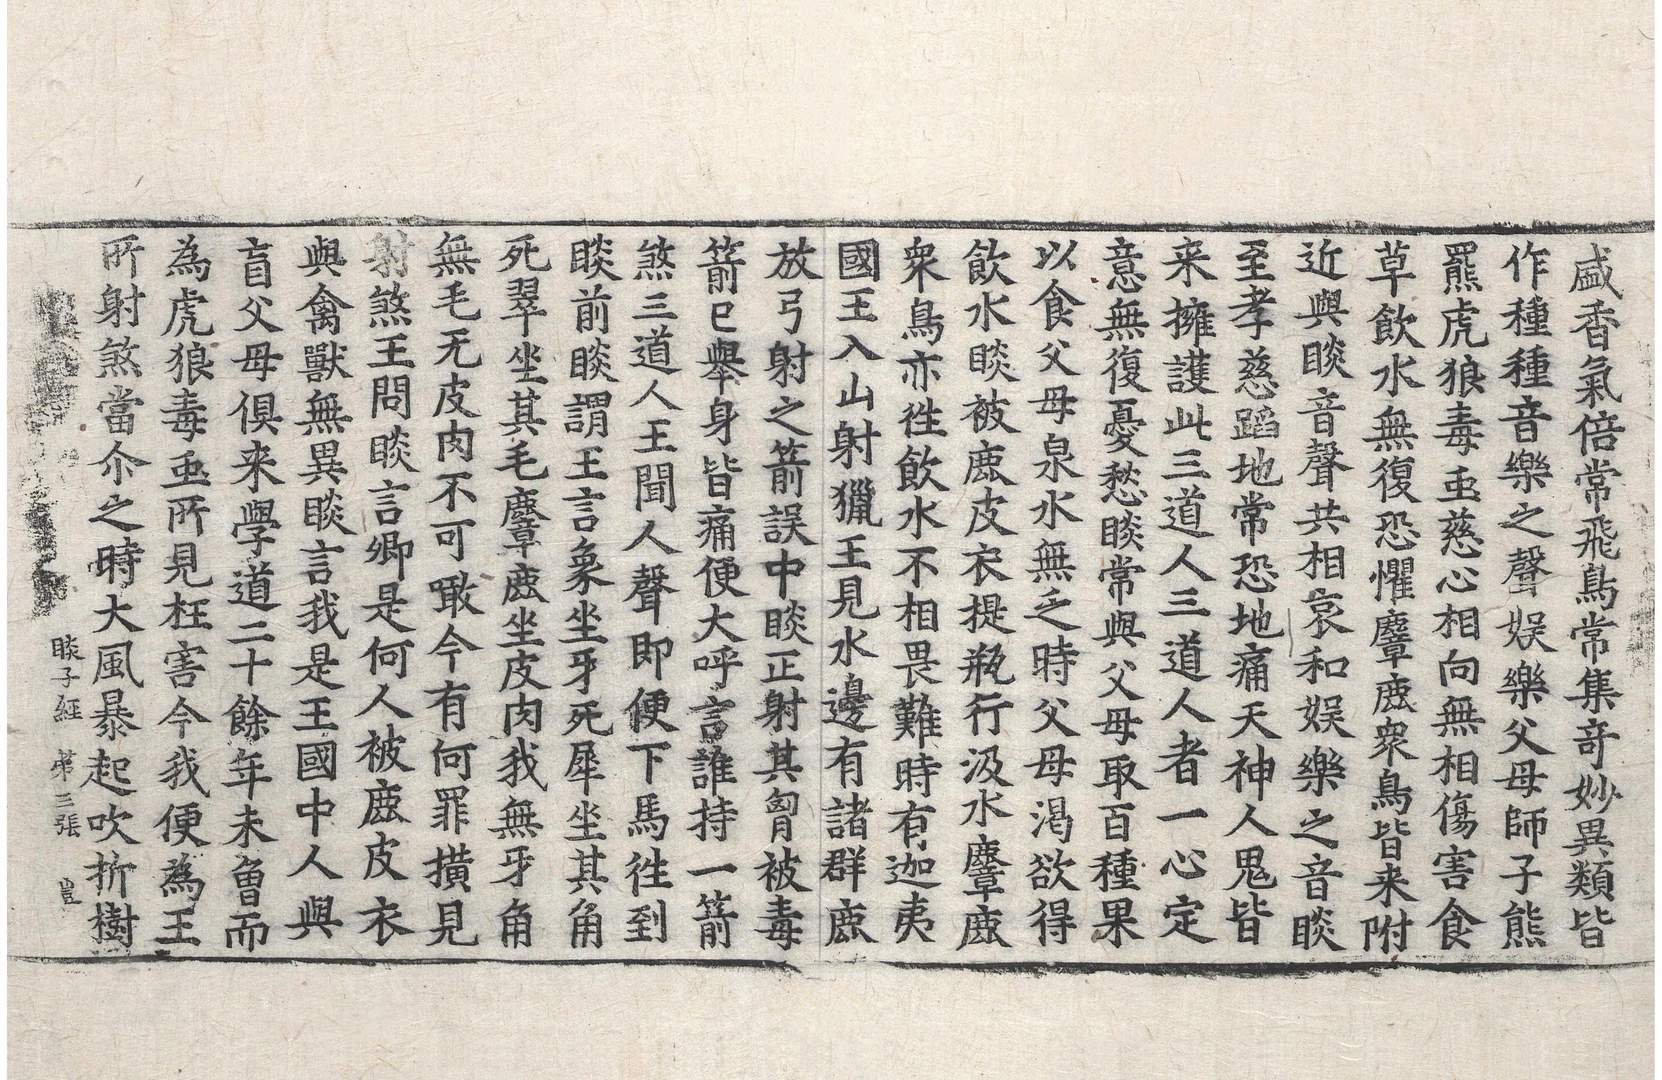 盛香氣倍常飛鳥常集奇妙異類皆
作種種音樂之聲娛樂父母師子熊
羆虎狼毒䖝慈心相向無相傷害食
草飲水無復恐懼麞鹿衆鳥皆来附
近與睒音聲共相哀和娛樂之音睒
至孝慈蹈地常恐地痛天神人鬼皆
来擁護此三道人三道人者一心定
意無復憂愁睒常與父母取百種果
以食父母泉水無乏時父母渴欲得
飲水睒被鹿皮衣提瓶行汲水麞鹿
衆鳥亦徃飲水不相畏難時有迦夷
國王入山射獵王見水邊有諸群鹿
放弓射之箭誤中睒正射其胷被毒
箭已舉身皆痛便大呼言誰持一箭
煞三道人王聞人聲即便下馬徃到
睒前睒謂王言象坐牙死犀坐其角
死翠坐其毛麞鹿坐皮肉我無牙角
無毛无皮肉不可噉今有何罪撗見
射煞王問睒言卿是何人被鹿皮衣
與禽獸無異睒言我是王國中人與
盲父母俱来學道二十餘年未曾而
為虎狼毒䖝所見枉害今我便為王
所射煞當尒之時大風暴起吹折樹
睒子經 第三張 豈